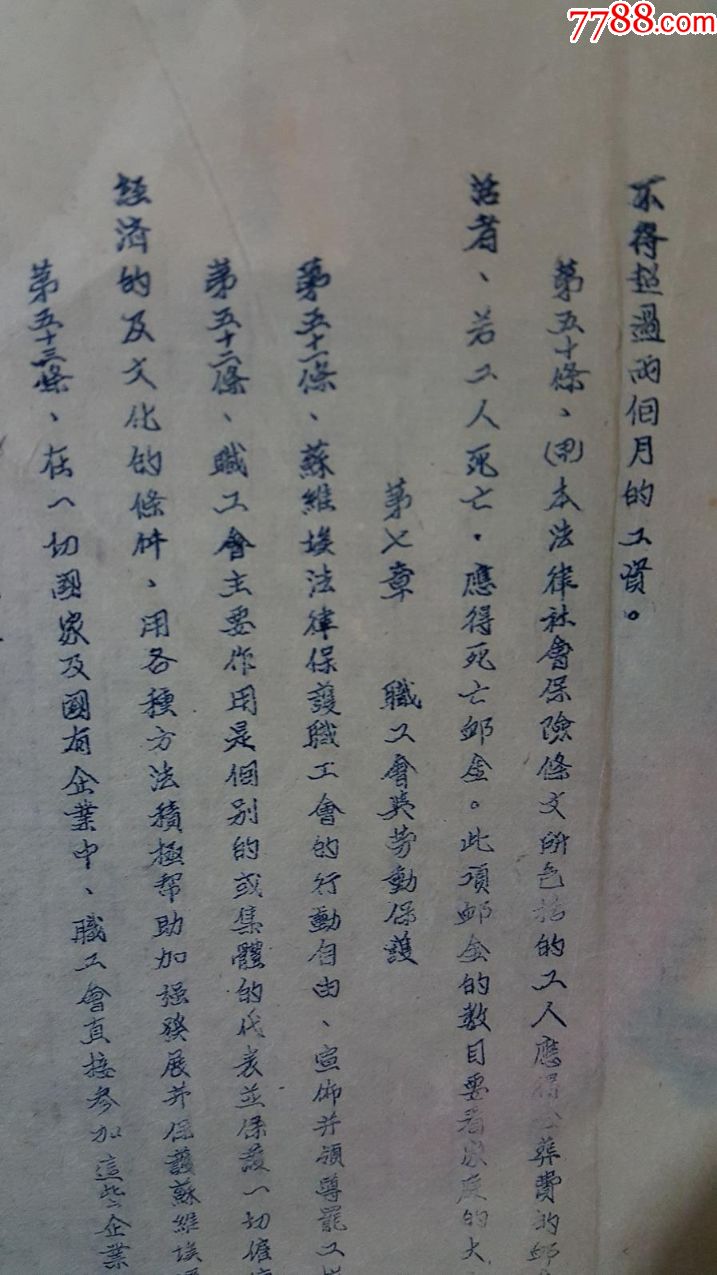 7788.com
不得超過兩個月的工資。
第五十條、(甲)本法律社會保險條文所包括的工人應得 葬費的卹
活者、若工人死亡.應得死亡卹金。此項卹金的数目要看家庭的大
第七章 職工會與劳動保護
第五十一條、蘇維埃法律保護職工會的行動自由、宣佈并領導罷工
第五十二條、職工會主要作用是個别的或集體的代表並保護一切僱
經濟的及文化的條件、用各種方法積極幫助加强發展并保護蘇維埃
第五十三條、在一切國家及國有企業中、職工會直接參加這些企業